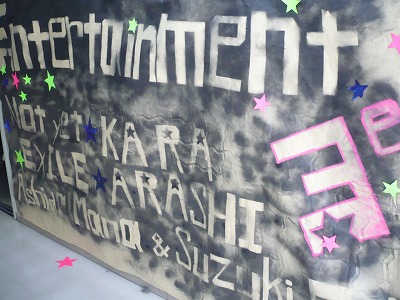 Entertainment
Not yet KARA
EXILE ARASHI
Ashida Mana & Suzuki